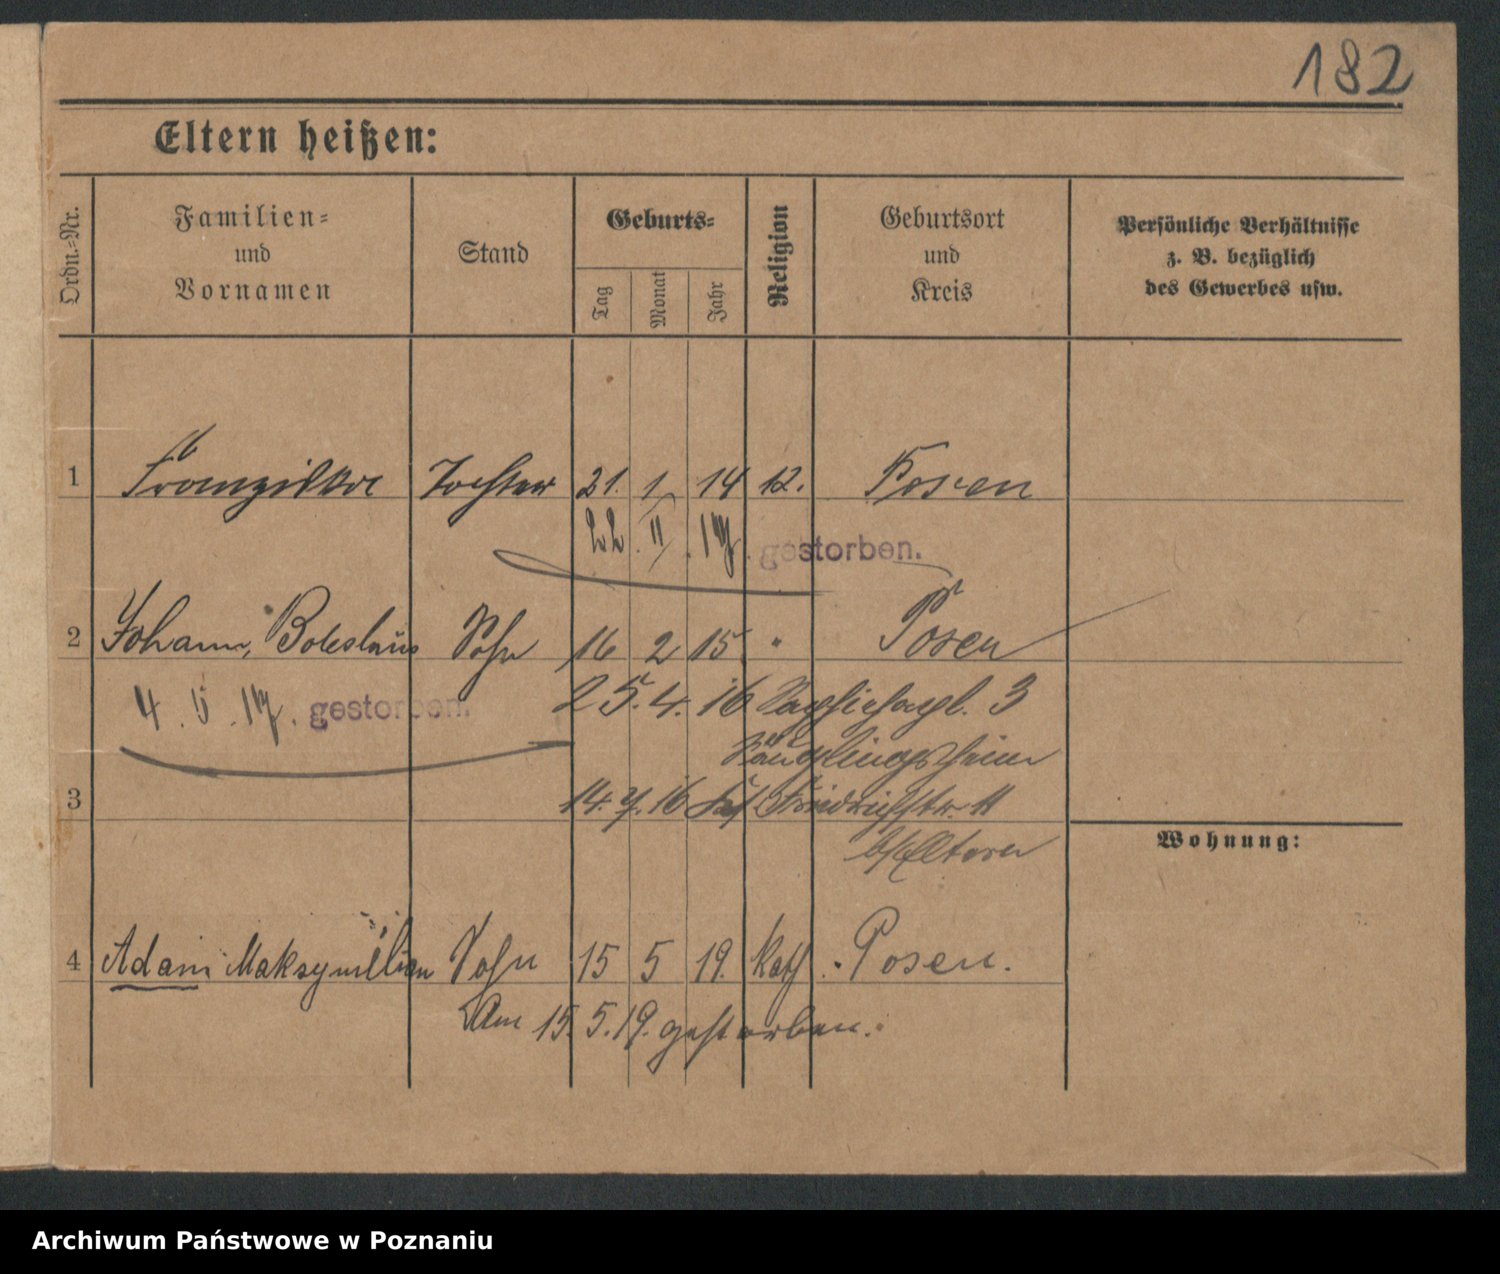 182
Eltern heißen:
Ordn.-Nr.
Familien-
und
Vornamen
Stand
Geburts-
Tag
Monat
Jahr
Religion
Geburtsort
und
Kreis
Persönliche Verhältnisse
z. B. bezüglich
des Gewerbes usw.
1 Franziska Tochter 21. 1 14 K. Posen
22. II. 17. gestorben.
2 Johann, Boleslaus Sohn 16 2 15 " Posen
4. 5. 17. gestorben. 25. 4. 16 3
Säuglingsheim
3 14. 7. 16 Friedrichstr. 11
Eltern
Wohnung:
4 Adam Maksymilian Sohn 15 5 19. kath. Posen.
Am 15. 5. 19. gestorben.
Archiwum Państwowe w Poznaniu